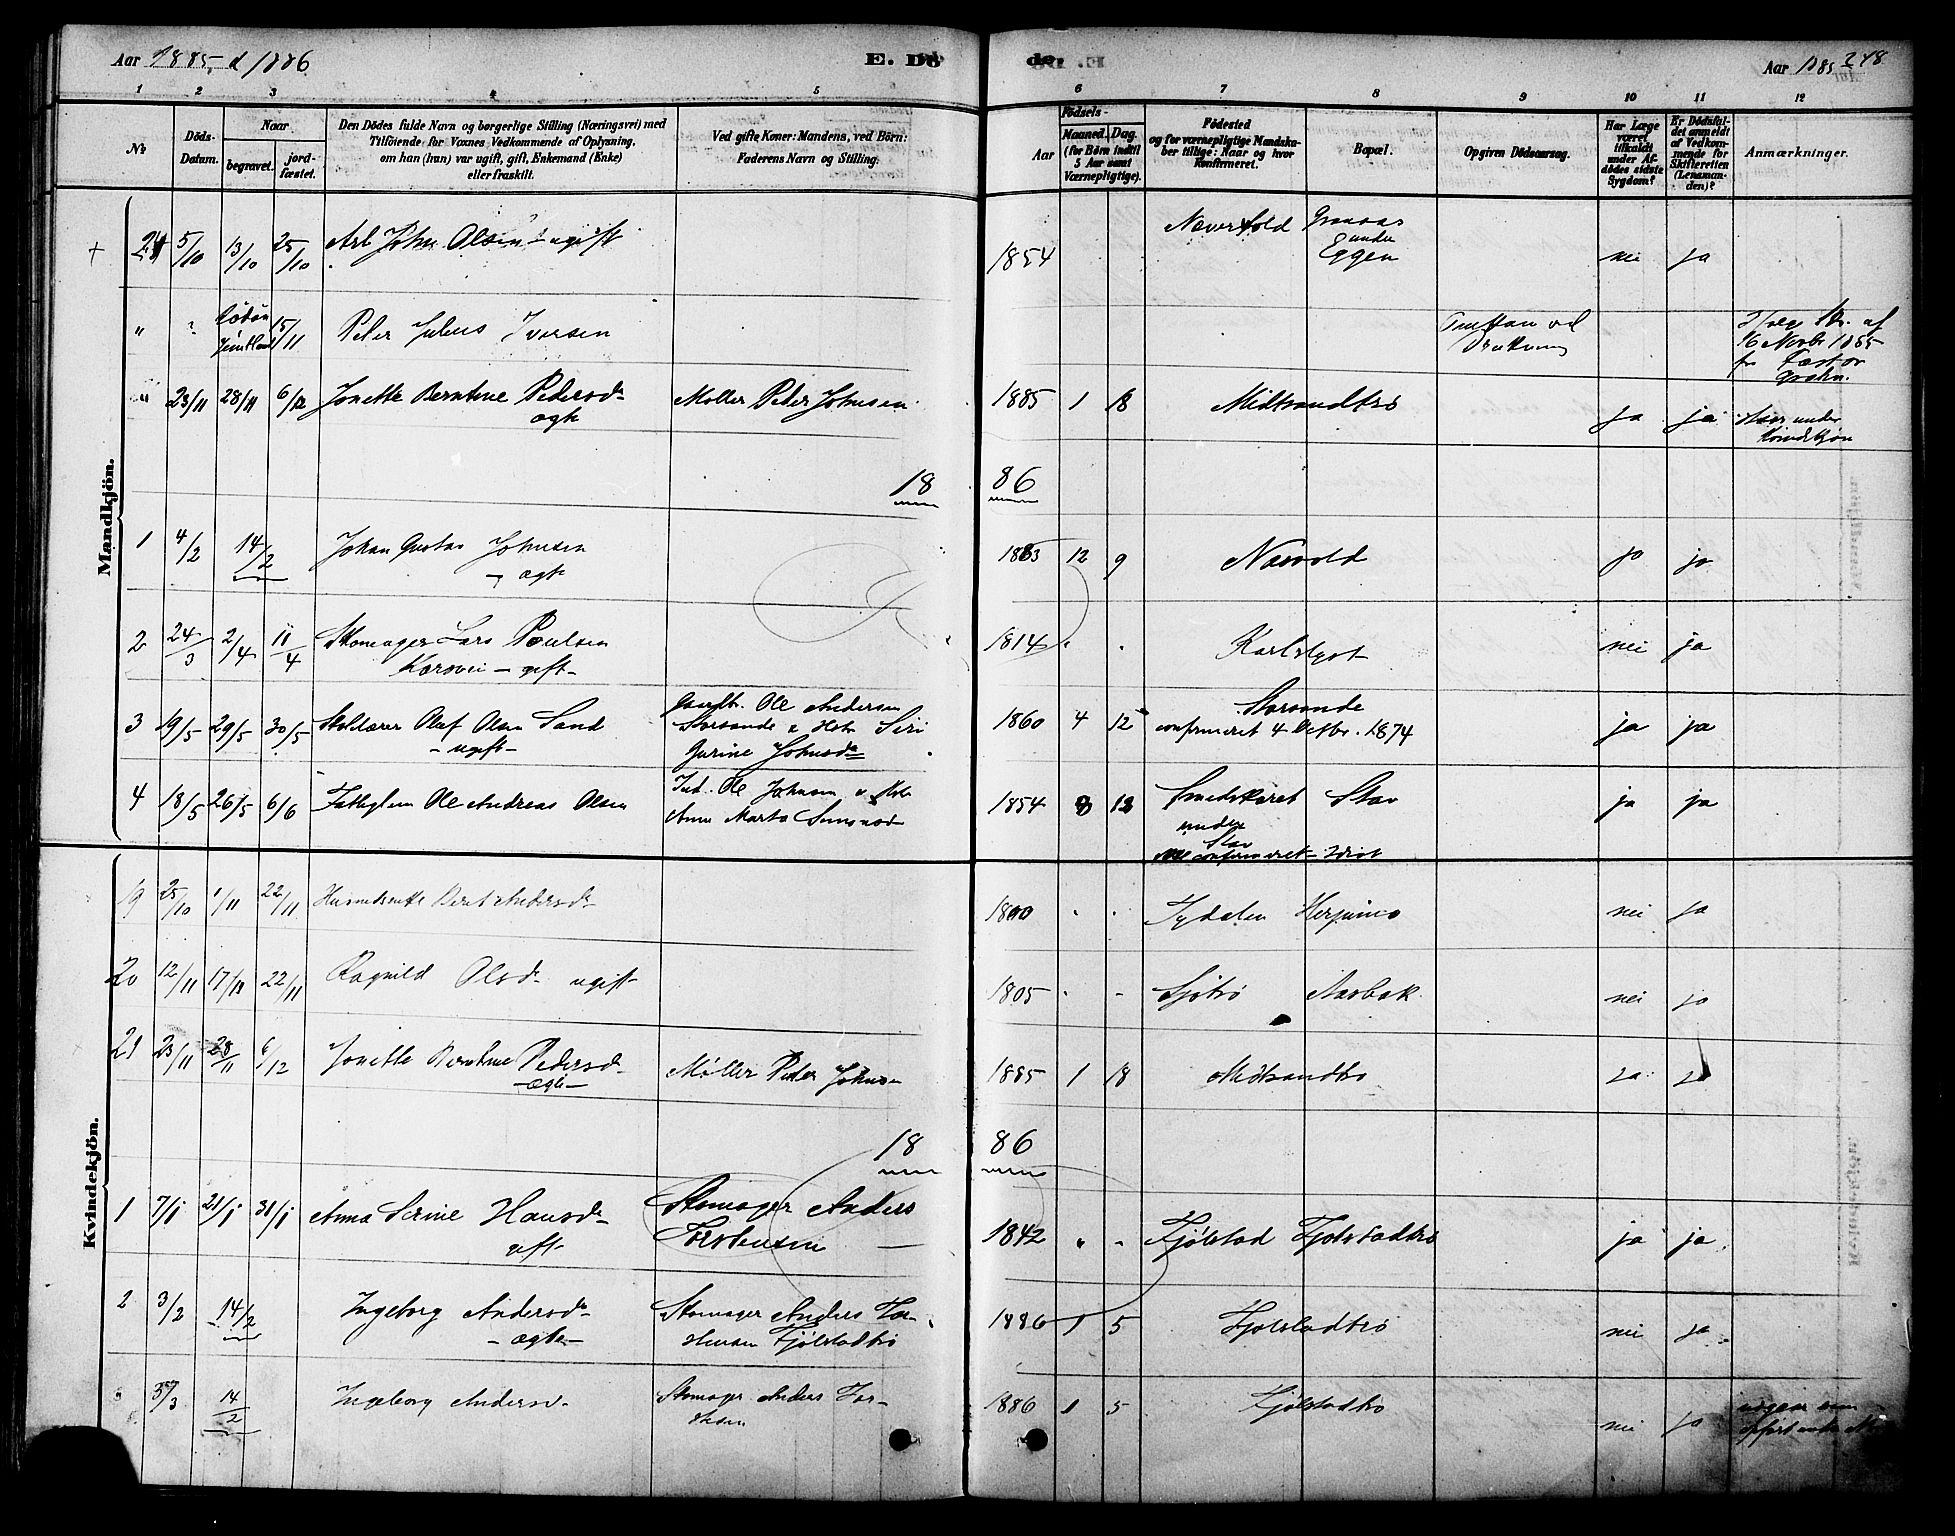 Aar 1885 & 1886
E. Dö
de.
Aar 1885
248
1 2 3 4 5 6 7 8 9 10 11 12
No
Döds-Datum.
Naar
begravet.
jordfæstet.
Den Dödes fulde Navn og borgerlige Stilling (Næringsvei) med
Tilföiende for Voxnes Vedkommende af Oplysning,
om han (hun) var ugift, gift, Enkemand (Enke)
eller fraskilt.
Ved gifte Koner: Mandens, ved Börn:
Faderens Navn og Stilling.
Födsels-
Aar
Maaned. Dag.
(for Börn indtil
5 Aar samt
Værnepligtige).
Födested
og for værnepligtige Mandska-
ber tillige: Naar og hvor
Konfirmeret.
Bopæl.
Opgiven Dödsaarsag.
Har Læge
været
tilkaldt
under Af-
dødes sidste
Sygdom?
Er Dödsfal-
det anmeldt
af Vedkom-
mende for
Skifteretten
(Lensman-
den)?
Anmærkninger.
Mandkjön.
24 5/10 13/10 25/10 Arb. John Olsen - ugift 1854 Nævervold Granaas
under
Eggen nei ja
" 15/11 Peter Julius Iversen
" 23/11 28/11 6/12 Jonette Berntine Pedersd.
ægte Møller Peter Johnsen 1885 1 18 Midtsandtrø ja ja
18 86
1 4/2 14/2 Johan Gustav Johnsen
- ægte 1883 12 9 Næsvold ja ja
2 24/3 2/4 11/4 Skomager Lars Poulsen
gift 1814 " " Karlslyst nei ja
3 19/5 29/5 30/5 Skolelærer Oluf Olsen Sand
- ugift - Gaardbr. Ole Andersen
Storsande & Hstr Siri
Gurine Johnsd. 1860 4 12 Storsande
confirmeret 4 Octbr. 1874 ja ja
4 18/5 26/5 6/6 Fattiglem Ole Andreas Olsen Ind. Ole Johnsen & Hstr
Anne Marta Simonsd. 1854 8 12 Smedskaret
under
Stav Stav
confirmeret - Idiot ja ja
Kvindekjön.
19 25/10 1/11 22/11 1800 " " Tydalen nei ja
20 12/11 17/11 22/11 Ragnild Olsd. ugift 1805 " " Sjøtrø Aasbak nei ja
21 23/11 28/11 6/12 Jonette Berntine Pedersd.
- ægte - Møller Peter Johnsen 1885 1 18 Midtsandtrø ja ja
18 86
1 7/1 21/1 31/1 Anna Serine Hansd.
gift Skomager Anders
Torstensen 1842 " " Fjølstad Fjølstadtrø ja ja
2 3/2 14/2 Ingeborg Andersd.
- ægte Skomager Anders Tor-
stensen Fjølstadtrø 1886 1 5 Fjølstadtrø nei ja
3/3 14/2 Ingeborg Andersd. Skomager Anders Tor-
stensen 1886 1 5 Fjølstadtrø nei ja